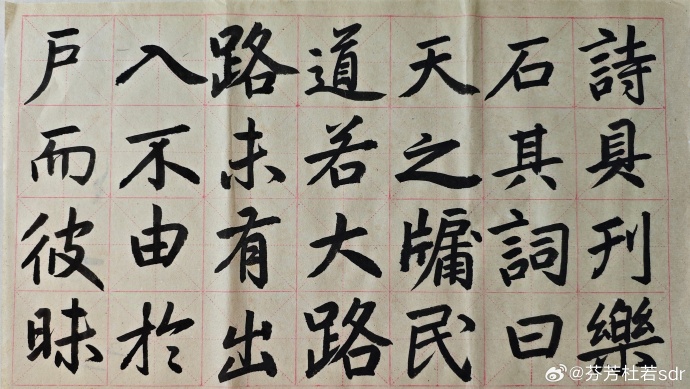 詩具刊樂
石其詞曰
天之牖民
道若大路
路未有出
入不由於
戶而彼昧
@芬芳杜若sdr